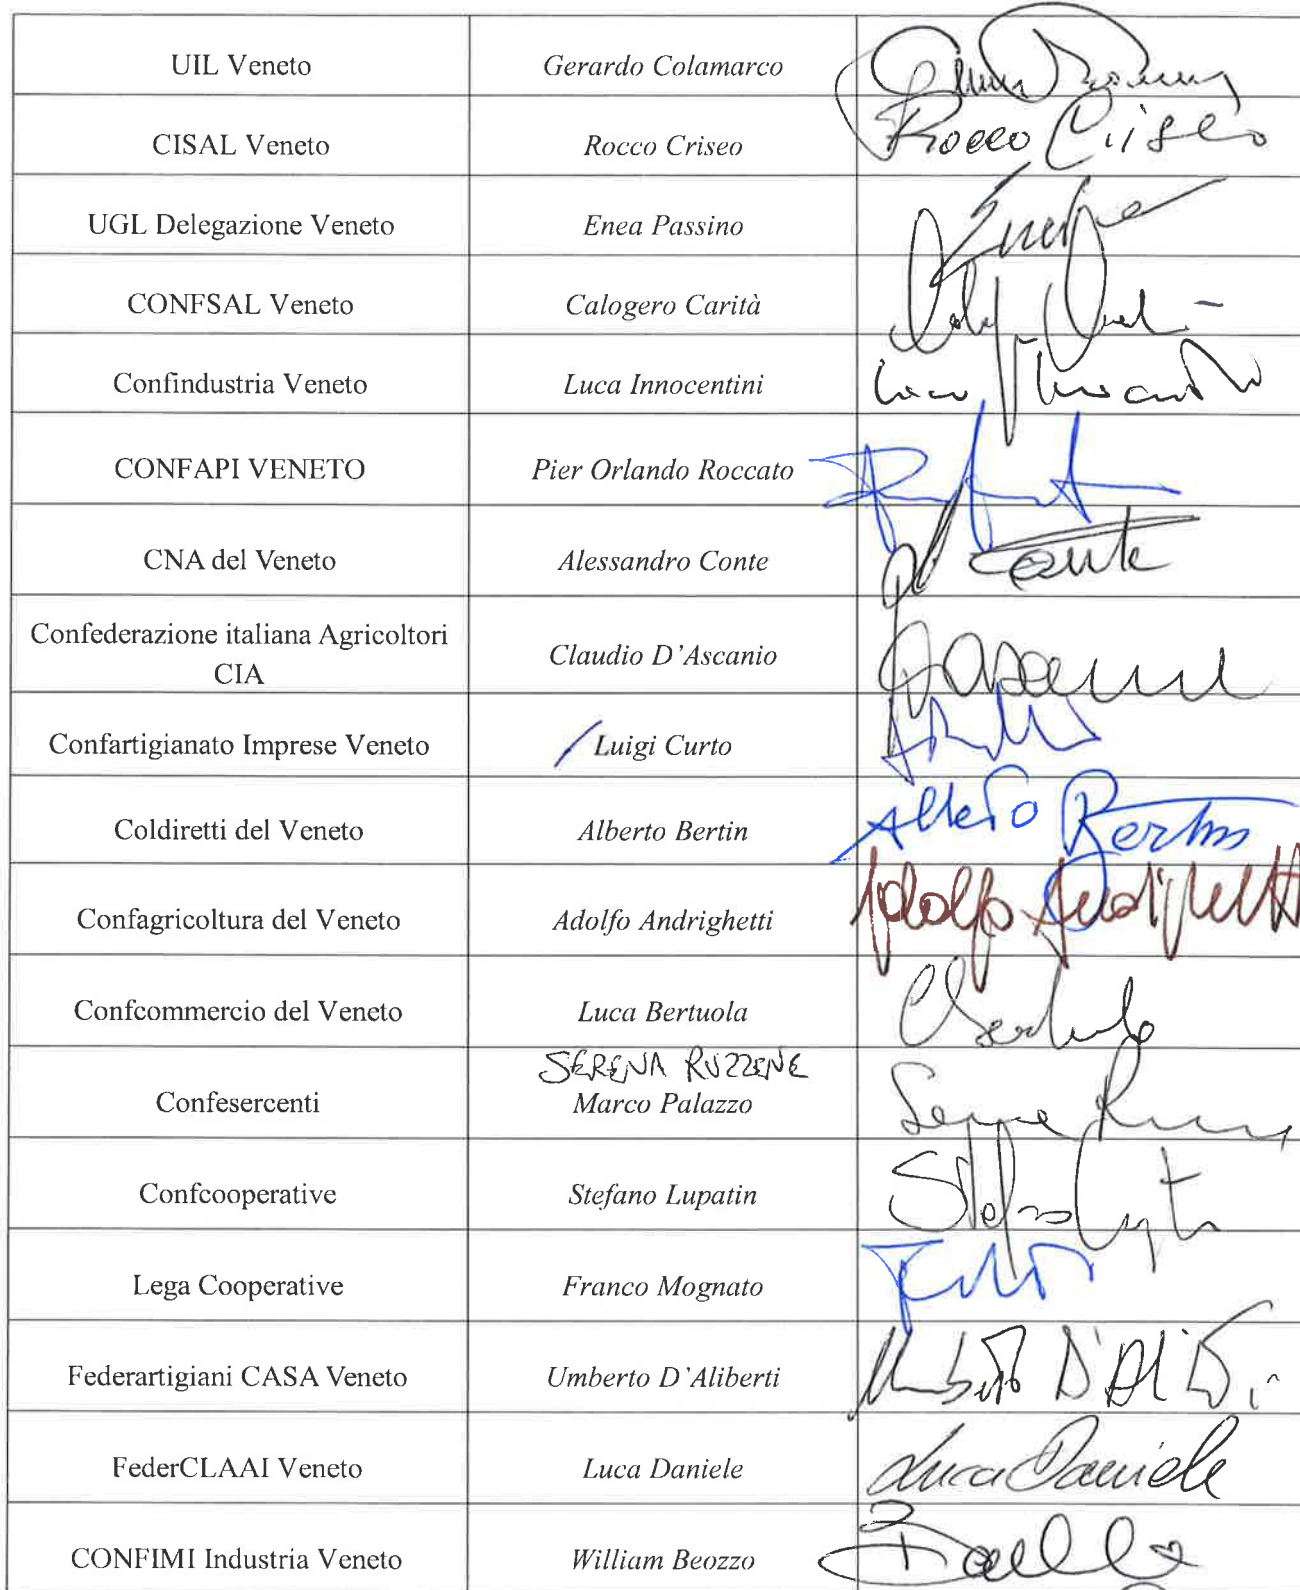 UIL Veneto Gerardo Colamarco
CISAL Veneto Rocco Criseo Rocco Criseo
UGL Delegazione Veneto Enea Passino
CONFSAL Veneto Calogero Carità
Confindustria Veneto Luca Innocentini
CONFAPI VENETO Pier Orlando Roccato
CNA del Veneto Alessandro Conte Conte
Confederazione italiana Agricoltori
CIA Claudio D'Ascanio
Confartigianato Imprese Veneto Luigi Curto
Coldiretti del Veneto Alberto Bertin Alberto Bertin
Confagricoltura del Veneto Adolfo Andrighetti Adolfo Andrighetti
Confcommercio del Veneto Luca Bertuola
SERENA RUZZENE
Confesercenti Marco Palazzo
Confcooperative Stefano Lupatin
Lega Cooperative Franco Mognato
Federartigiani CASA Veneto Umberto D'Aliberti
FederCLAAI Veneto Luca Daniele Luca Daniele
CONFIMI Industria Veneto William Beozzo